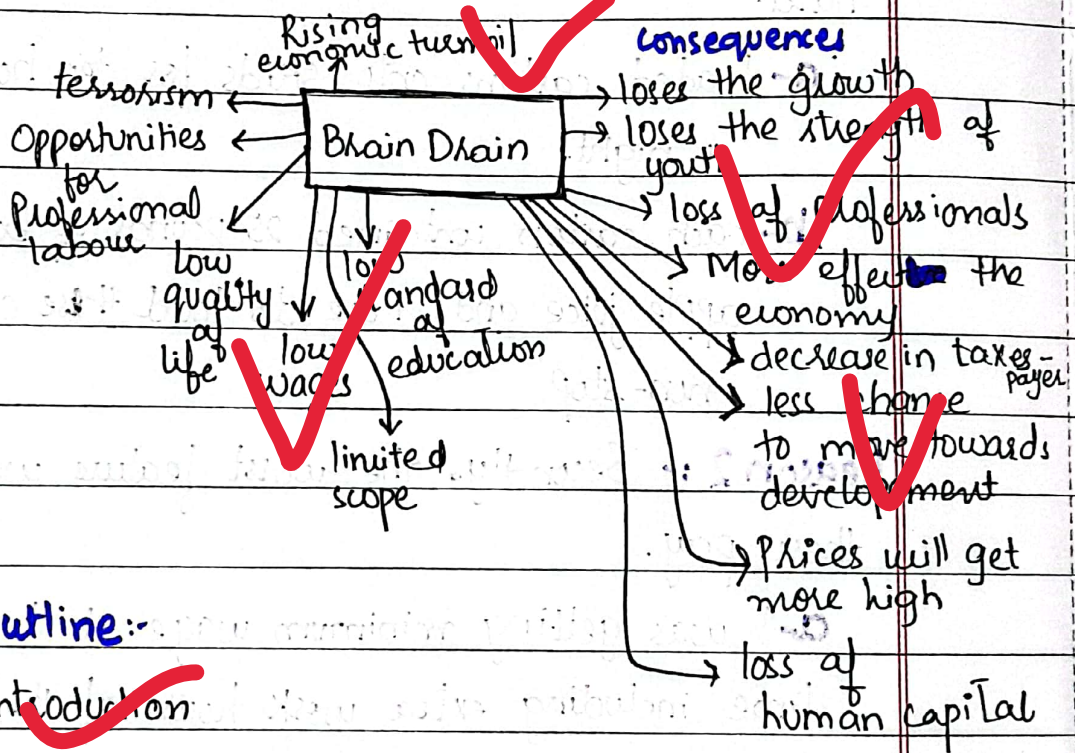 Rising
economic turmoil
terrorism
Opportunities
for
Professional
labour
Brain Drain
low
quality
of
life
low
wages
low
standard
of
education
limited
scope
consequences
loses the growth
loses the strength of
youth
loss of professionals
More effect the
economy
decrease in taxes-
payer
less chance
to move towards
development
Prices will get
more high
loss of
human capital
utline:-
ntroduction